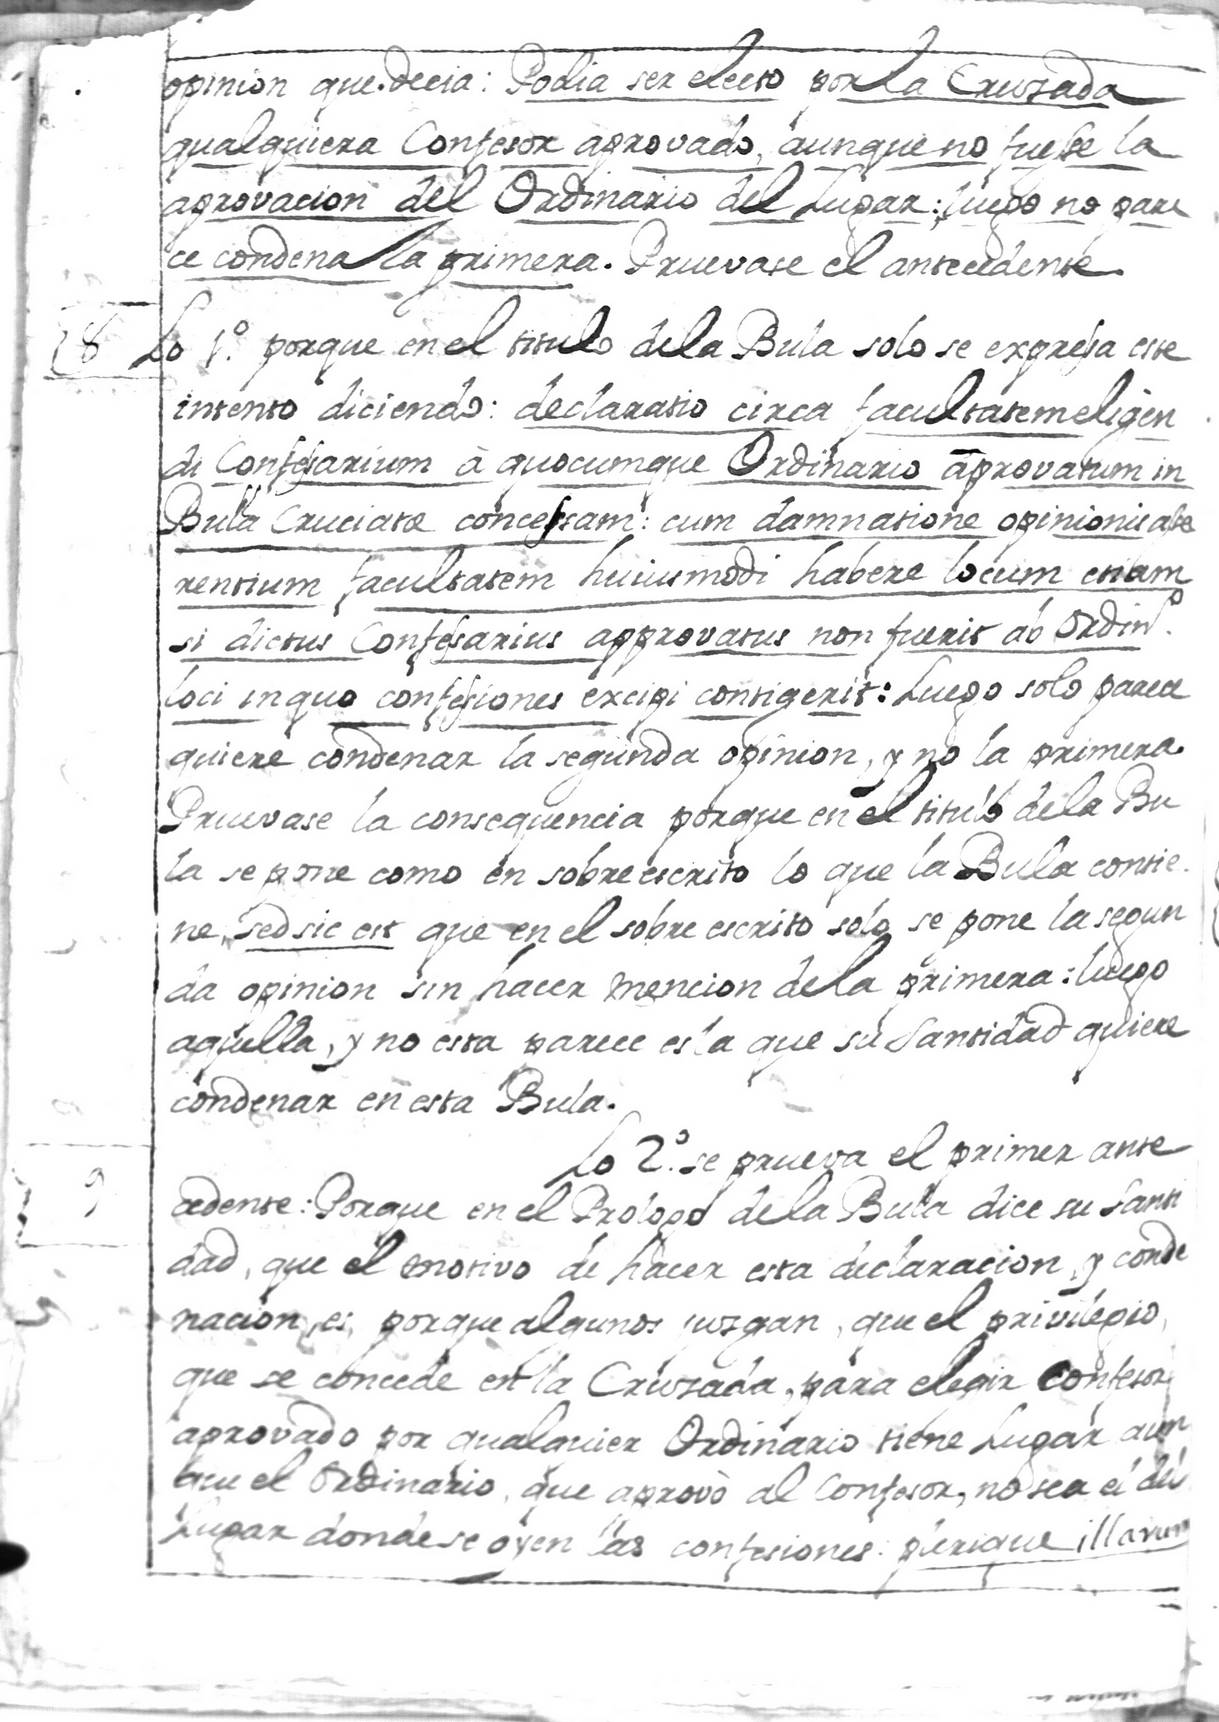 opinion que decia: Podia ser electo por la Cruzada
qualquiera Confesor aprovado, aunque no fuesse la
aprovacion del Ordinario del Lugar: luego no pare
ce condena la primera. Pruevase el antecedente.
8 Lo 1.º porque en el titulo de la Bula solo se expresa este
intento diciendo: declaratio circa facultatem eligen
di Confessarium à quocumque Ordinario aprovatum in
Bula Cruciatæ concessam: cum damnatione opinionis asse
rentium facultatem huiusmodi habere locum etiam
si dictus Confessarius approvatus non fuerit ab Ordin.º
loci in quo confessiones excipi contigerit: Luego solo parece
quiere condenar la segunda opinion, y no la primera.
Pruevase la consequencia porque en el titulo de la Bu
la se pone como en sobreescrito lo que la Bula contie
ne, sed sic est que en el sobre escrito solo se pone la segun
da opinion sin hacer mencion de la primera: luego
aquella, y no esta parece es la que su Santidad quiere
condenar en esta Bula.
9 Lo 2.º se prueva el primer ante
cedente: Porque en el Prologo de la Bula dice su Santi
dad, que el motivo de hacer esta declaracion, y conde
nacion, es, porque algunos juzgan, que el privilegio,
que se concede en la Cruzada, para elegir Confesor
aprovado por qualquier Ordinario tiene Lugar aun
que el Ordinario, que aprovò al Confesor, no sea el del
Lugar donde se oyen las confesiones: plerique illarum